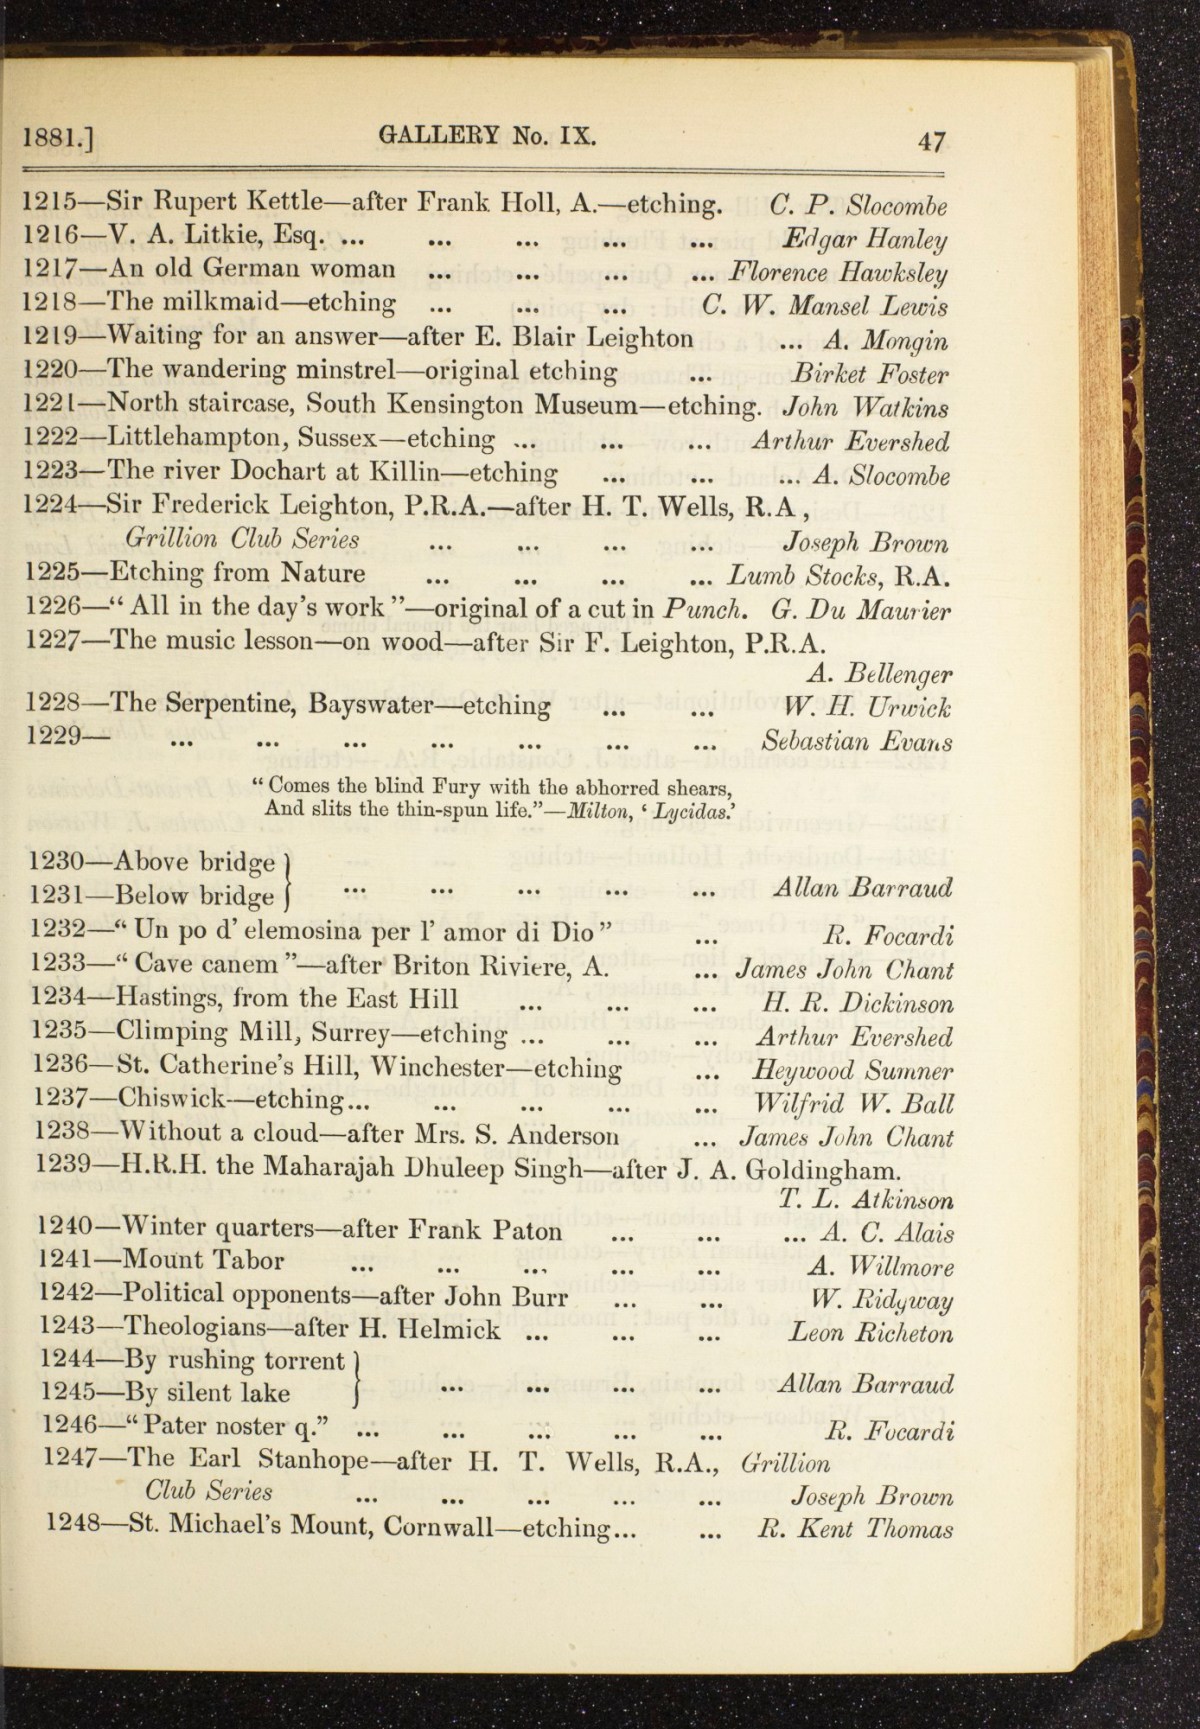 1881.] GALLERY No. IX. 47
1215—Sir Rupert Kettle—after Frank Holl, A.—etching. C. P. Slocombe
1216—V. A. Litkie, Esq. ... ... ... ... ... Edgar Hanley
1217—An old German woman ... ... ... ... Florence Hawksley
1218—The milkmaid—etching ... ... ... C. W. Mansel Lewis
1219—Waiting for an answer—after E. Blair Leighton ... A. Mongin
1220—The wandering minstrel—original etching ... Birket Foster
1221—North staircase, South Kensington Museum—etching. John Watkins
1222—Littlehampton, Sussex—etching ... ... ... Arthur Evershed
1223—The river Dochart at Killin—etching ... ... ... A. Slocombe
1224—Sir Frederick Leighton, P.R.A.—after H. T. Wells, R.A,
Grillion Club Series ... ... ... ... Joseph Brown
1225—Etching from Nature ... ... ... ... Lumb Stocks, R.A.
1226—“ All in the day’s work ”—original of a cut in Punch. G. Du Maurier
1227—The music lesson—on wood—after Sir F. Leighton, P.R.A.
A. Bellenger
1228—The Serpentine, Bayswater—etching ... ... W. H. Urwick
1229— ... ... ... ... ... ... ... Sebastian Evans
“ Comes the blind Fury with the abhorred shears,
And slits the thin-spun life.”—Milton, ‘ Lycidas.’
1230—Above bridge }
1231—Below bridge } ... ... ... ... ... Allan Barraud
1232—“ Un po d’ elemosina per l’ amor di Dio ” ... R. Focardi
1233—“ Cave canem ”—after Briton Riviere, A. ... James John Chant
1234—Hastings, from the East Hill ... ... ... H. R. Dickinson
1235—Climping Mill, Surrey—etching ... ... ... Arthur Evershed
1236—St. Catherine’s Hill, Winchester—etching ... Heywood Sumner
1237—Chiswick—etching... ... ... ... ... Wilfrid W. Ball
1238—Without a cloud—after Mrs. S. Anderson ... James John Chant
1239—H.R.H. the Maharajah Dhuleep Singh—after J. A. Goldingham.
T. L. Atkinson
1240—Winter quarters—after Frank Paton ... ... ... A. C. Alais
1241—Mount Tabor ... ... ... ... ... A. Willmore
1242—Political opponents—after John Burr ... ... W. Ridgway
1243—Theologians—after H. Helmick ... ... ... Leon Richeton
1244—By rushing torrent }
1245—By silent lake } ... ... ... ... Allan Barraud
1246—“ Pater noster q.” ... ... ... ... ... R. Focardi
1247—The Earl Stanhope—after H. T. Wells, R.A., Grillion
Club Series ... ... ... ... ... Joseph Brown
1248—St. Michael’s Mount, Cornwall—etching... ... R. Kent Thomas